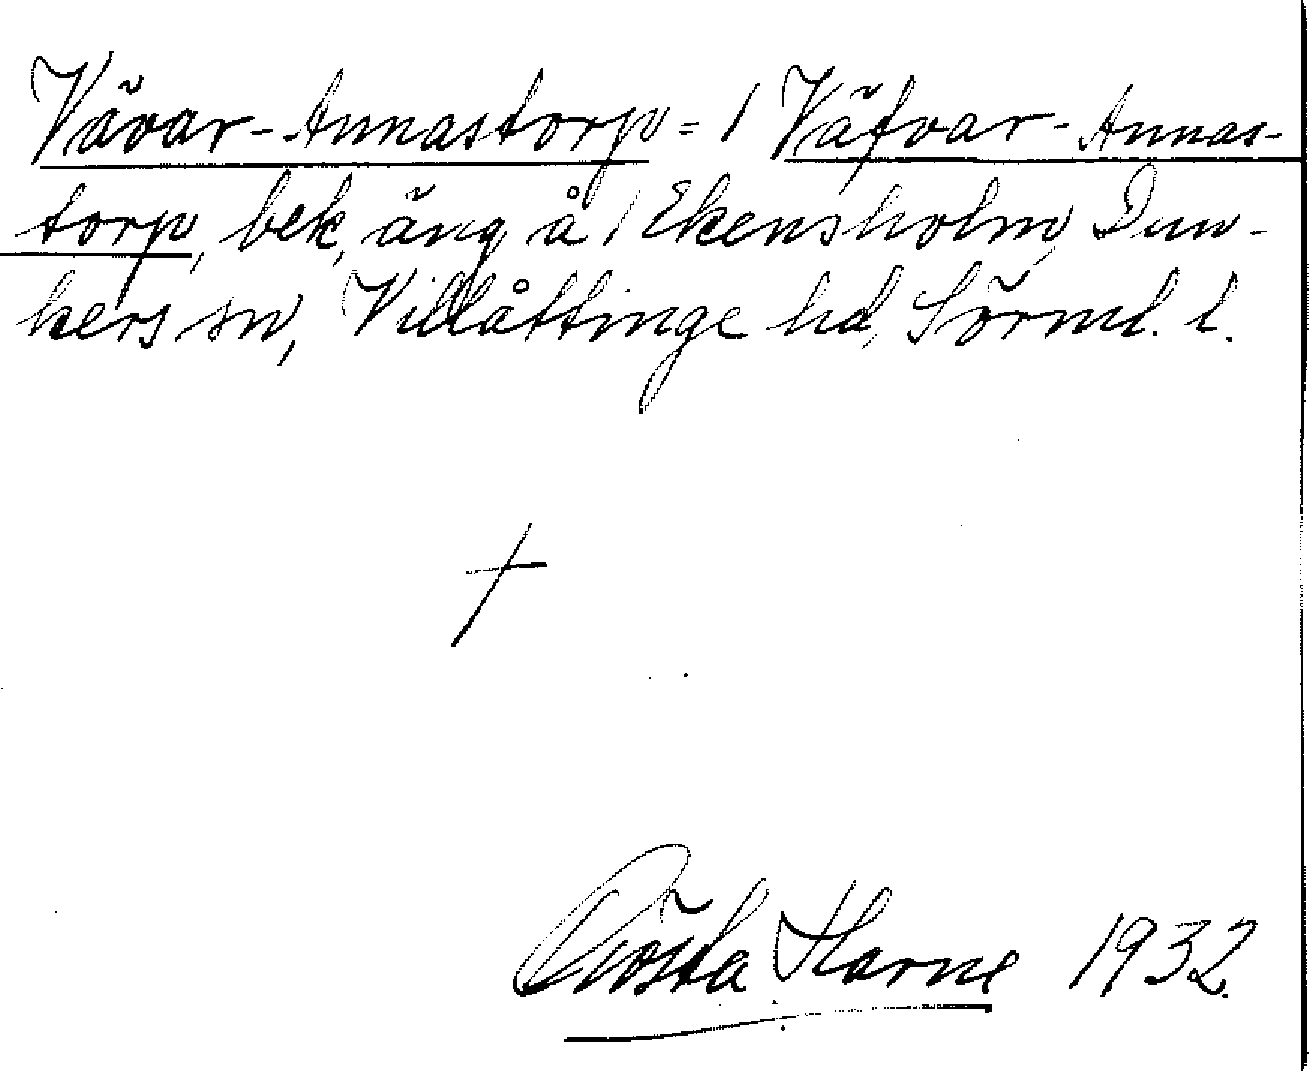 Vävar-Annastorp = / Väfvar-Annas-
torp, bek, äng å / Ekensholm, Dun-
kers sn, Villåttinge hd, Sörml. l.
Gösta Harne 1932.